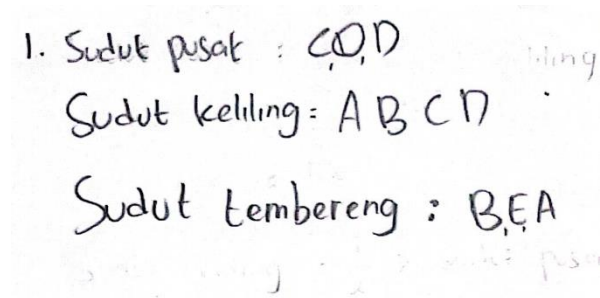 1. Sudut pusat : C,O,D
Sudut keliling = A B C D
Sudut tembereng : B,E,A